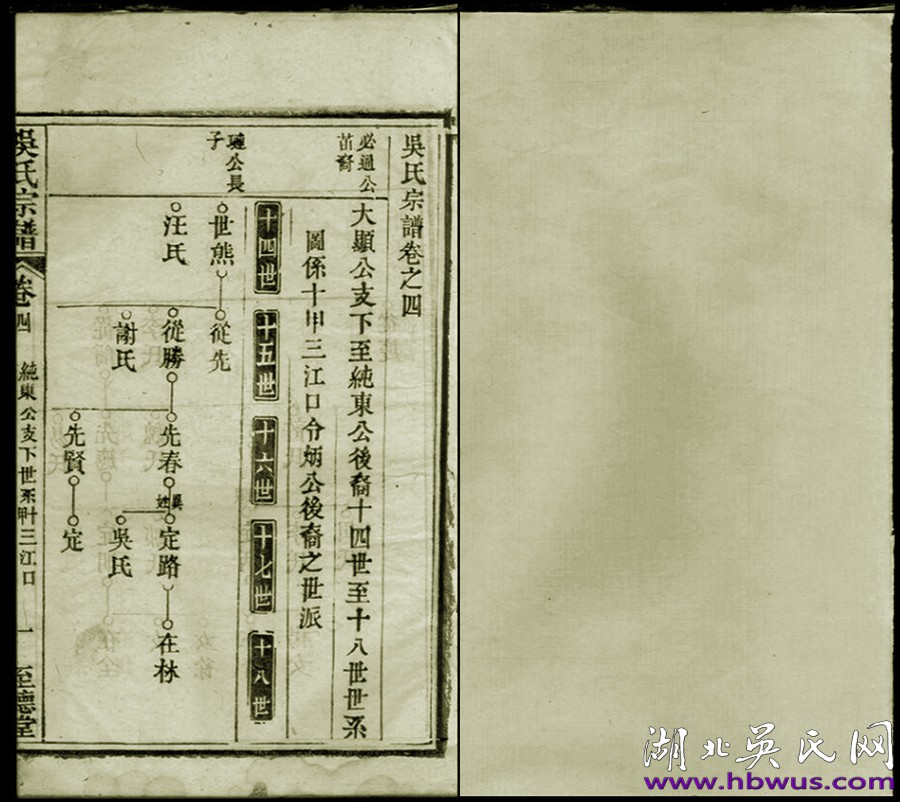 吳氏宗譜卷之四
必通公
苗裔
大顯公支下至純東公後裔十四世至十八世世系
圖係十甲三江口令炳公後裔之世派
十四世
十五世
十六世
十七世
十八世
璉公長
子
世熊
從先
汪氏
從勝
先春
異姓
定路
在林
謝氏
吳氏
先賢
定
吳氏宗譜
卷四
純東公支下世系
三江口
一
至德堂
湖北吴氏网
www.hbwus.com